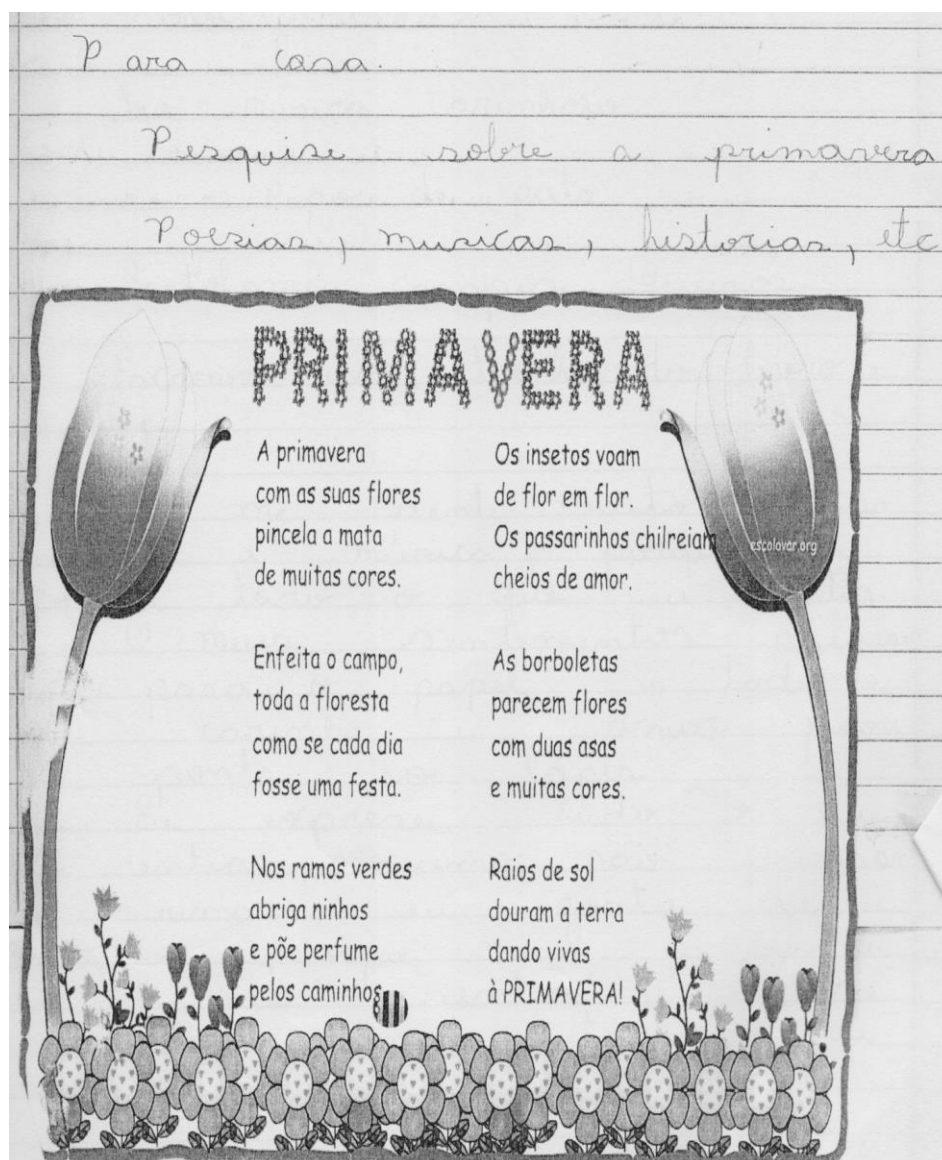 Para casa.
Pesquise sobre a primavera
Poezias, musicas, historias, etc
PRIMAVERA
A primavera
com as suas flores
pincela a mata
de muitas cores.
Enfeita o campo,
toda a floresta
como se cada dia
fosse uma festa.
Nos ramos verdes
abriga ninhos
e põe perfume
pelos caminhos
Os insetos voam
de flor em flor.
Os passarinhos chilreiam
cheios de amor.
As borboletas
parecem flores
com duas asas
e muitas cores.
Raios de sol
douram a terra
dando vivas
à PRIMAVERA!
escolovar.org